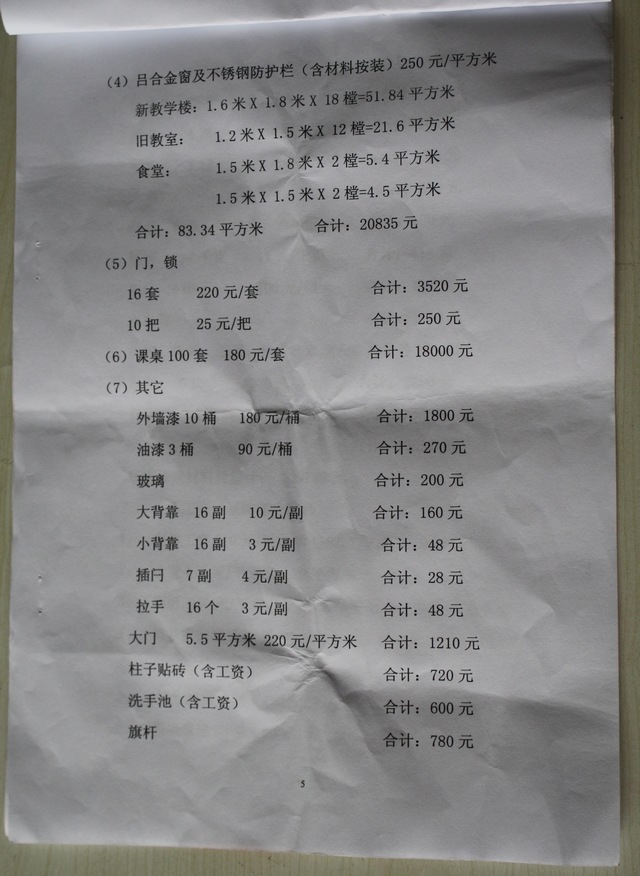 （4）吕合金窗及不锈钢防护栏（含材料按装）250 元/平方米
新教学楼：1.6 米 X 1.8 米 X 18 樘=51.84 平方米
旧教室： 1.2 米 X 1.5 米 X 12 樘=21.6 平方米
食堂： 1.5 米 X 1.8 米 X 2 樘=5.4 平方米
1.5 米 X 1.5 米 X 2 樘=4.5 平方米
合计：83.34 平方米 合计：20835 元
（5）门，锁
16 套 220 元/套 合计：3520 元
10 把 25 元/把 合计：250 元
（6）课桌 100 套 180 元/套 合计：18000 元
（7）其它
外墙漆 10 桶 180 元/桶 合计：1800 元
油漆 3 桶 90 元/桶 合计：270 元
玻璃 合计：200 元
大背靠 16 副 10 元/副 合计：160 元
小背靠 16 副 3 元/副 合计：48 元
插闩 7 副 4 元/副 合计：28 元
拉手 16 个 3 元/副 合计：48 元
大门 5.5 平方米 220 元/平方米 合计：1210 元
柱子贴砖（含工资） 合计：720 元
洗手池（含工资） 合计：600 元
旗杆 合计：780 元
5